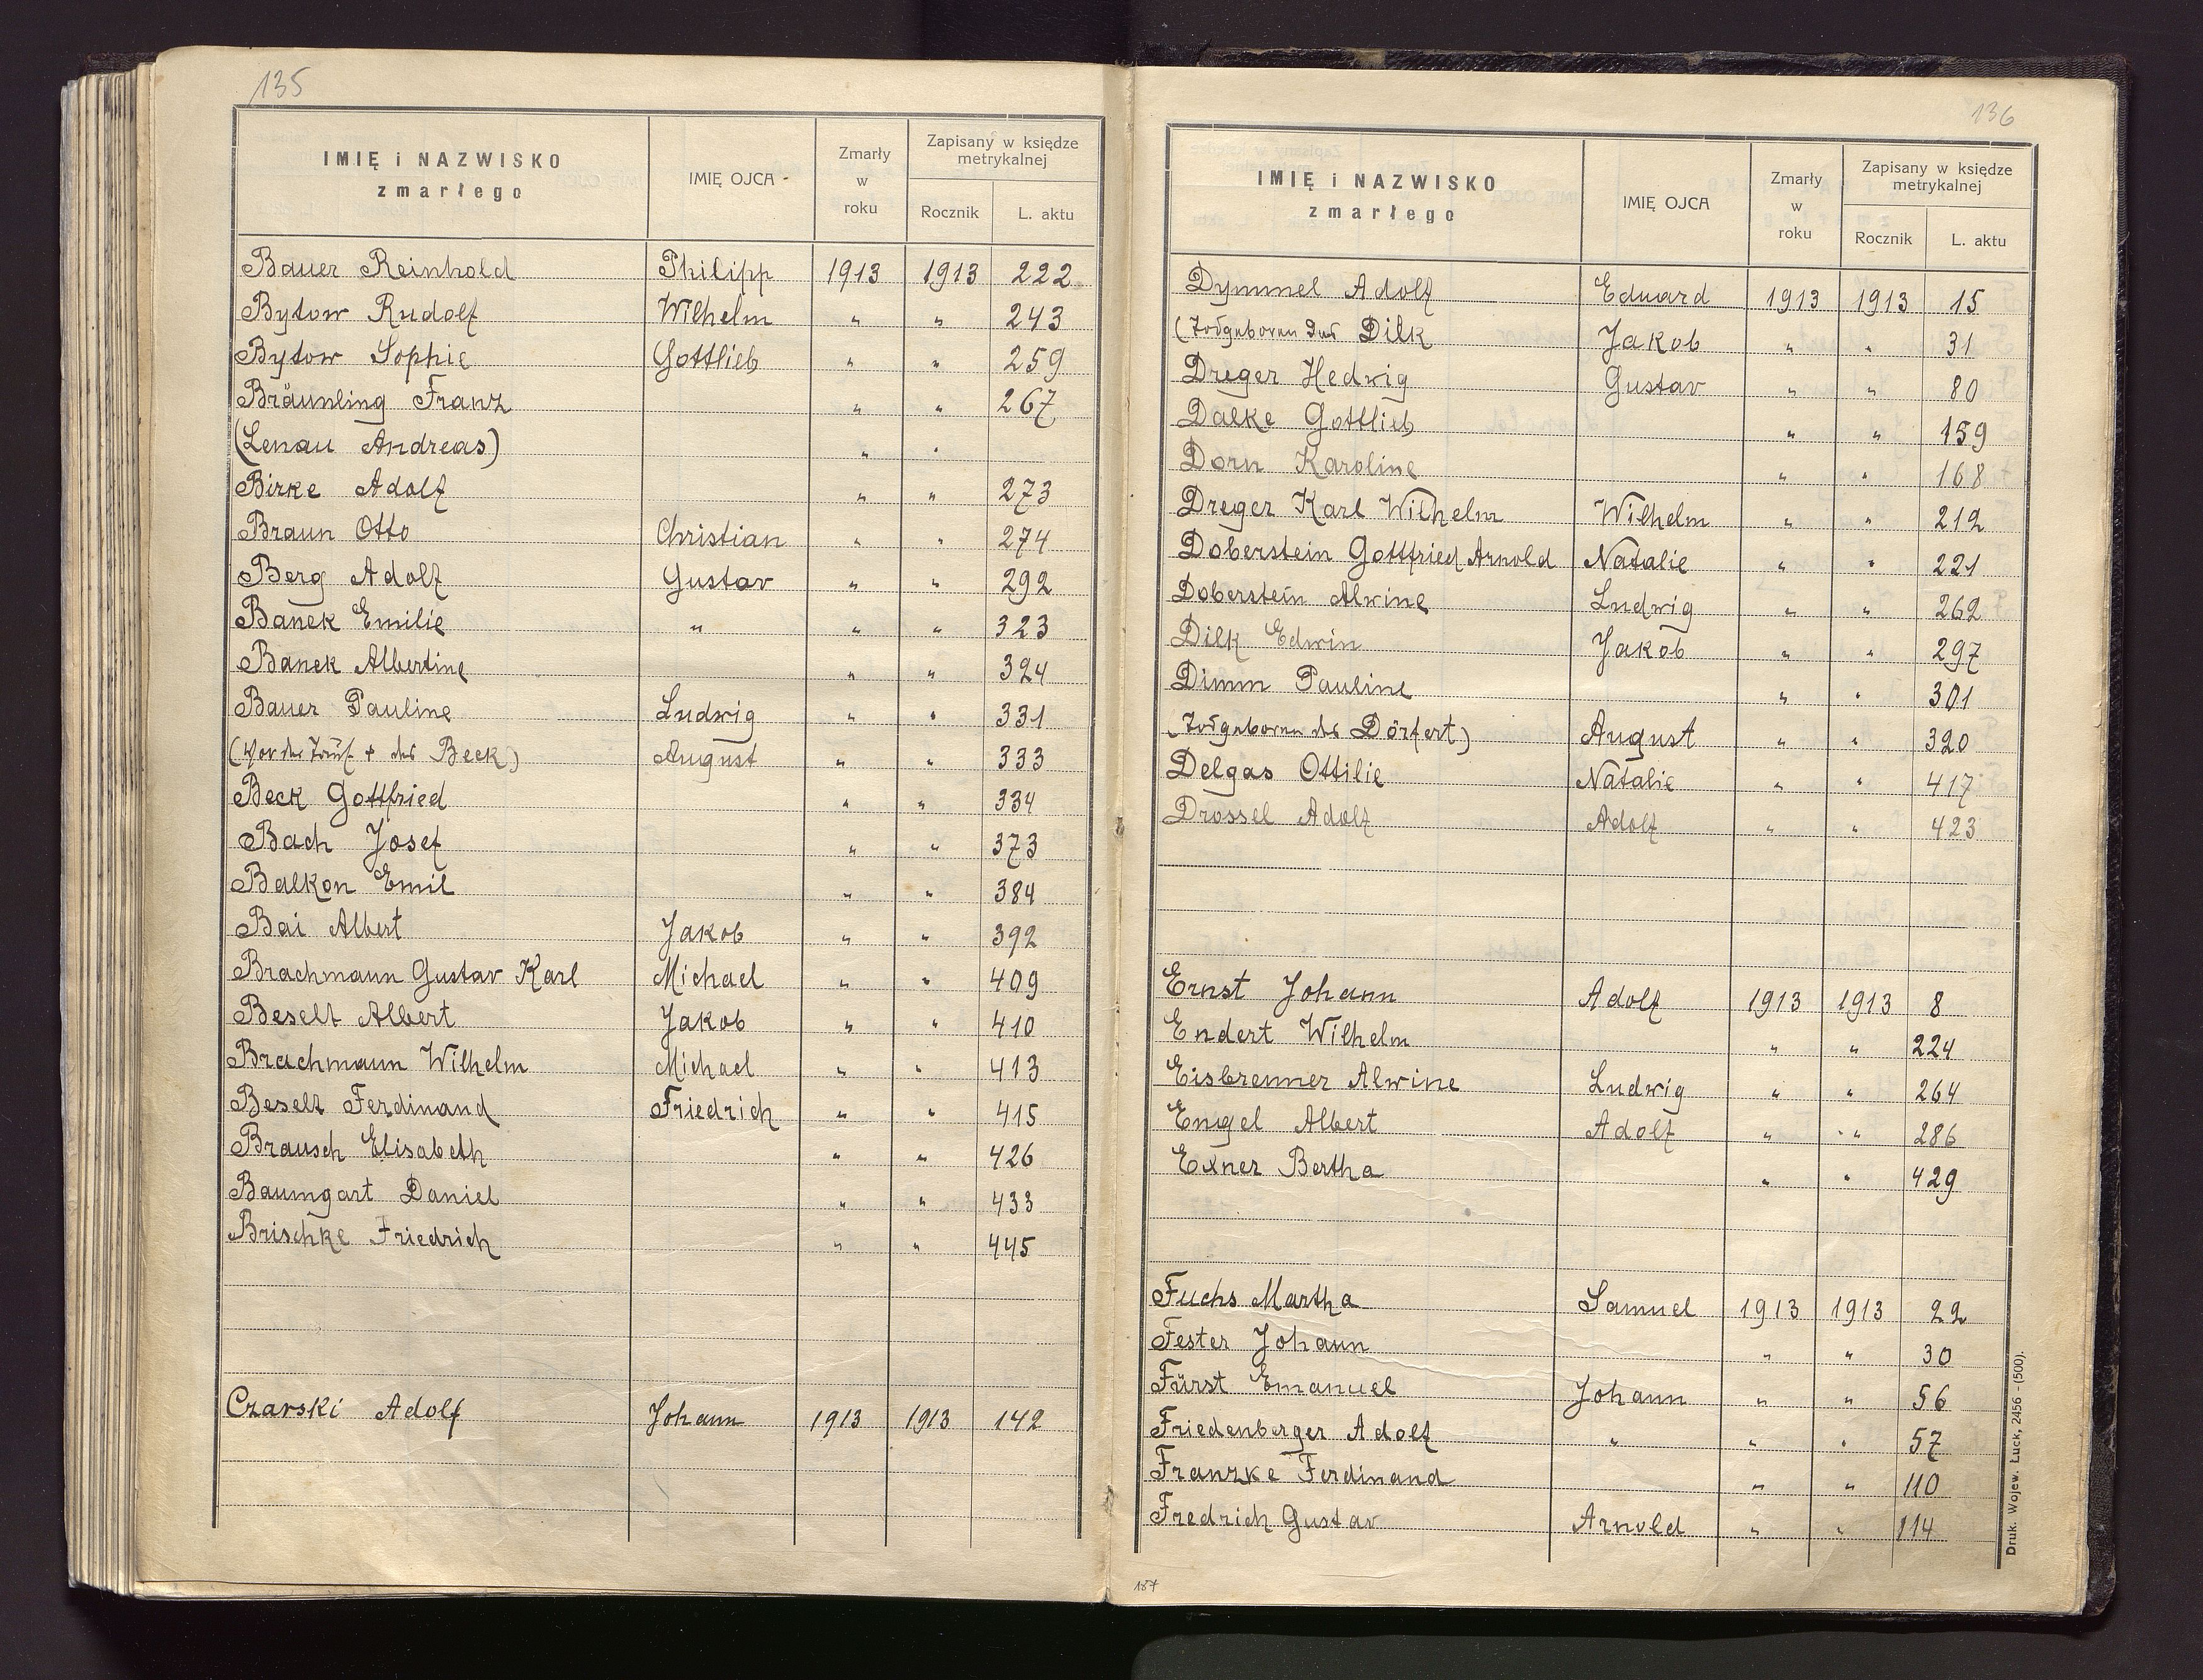 135
IMIĘ i NAZWISKO
zmarłego
IMIĘ OJCA
Zmarły
w
roku
Zapisany w księdze
metrykalnej
Rocznik
L. aktu
Bauer Reinhold Philipp 1913 1913 222
Bytow Rudolf Wilhelm " " 243
Bytow Sophie Gottlieb " " 259
Bräunling Franz " " 267
(Lenau Andreas) " "
Birke Adolf " " 273
Braun Otto Christian " " 274
Berg Adolf Gustav " " 292
Banek Emilie " " " 323
Banek Albertine " " 324
Bauer Pauline Ludwig " " 331
(Vor der Taufe + des Beck) August " " 333
Beck Gottfried " " 334
Bach Josef " " 373
Balkon Emil " " 384
Bai Albert Jakob " " 392
Brachmann Gustav Karl Michael " " 409
Beselt Albert Jakob " " 410
Brachmann Wilhelm Michael " " 413
Beselt Ferdinand Friedrich " " 415
Brausch Elisabeth " " 426
Baumgart Daniel " " 433
Brischke Friedrich " " 445
Czarski Adolf Johann 1913 1913 142
136
IMIĘ i NAZWISKO
zmarłego
IMIĘ OJCA
Zmarły
w
roku
Zapisany w księdze
metrykalnej
Rocznik
L. aktu
Dymmel Adolf Eduard 1913 1913 15
(Totgeboren des Dilk Jakob " " 31
Dreger Hedwig Gustav " " 80
Dalke Gottlieb " " 159
Dorn Karoline " " 168
Dreger Karl Wilhelm Wilhelm " " 212
Doberstein Gottfried Arnold Natalie " " 221
Doberstein Alwine Ludwig " " 262
Dilk Edwin Jakob " " 297
Dimm Pauline " " 301
(Totgeboren des Dörfert) August " " 320
Delgas Ottilie Natalie " " 417
Drossel Adolf Adolf " " 423
Ernst Johann Adolf 1913 1913 8
Endert Wilhelm " " 224
Eisbrenner Alwine Ludwig " " 264
Engel Albert Adolf " " 286
Exner Bertha " " 429
Fuchs Martha Samuel 1913 1913 22
Fester Johann " " 30
Fürst Emanuel Johann " " 56
Friedenberger Adolf " " " 57
Franzke Ferdinand " " 110
Fredrich Gustav Arnold " " 114
Druk. Wojew. Łuck, 2456 - (500).
187